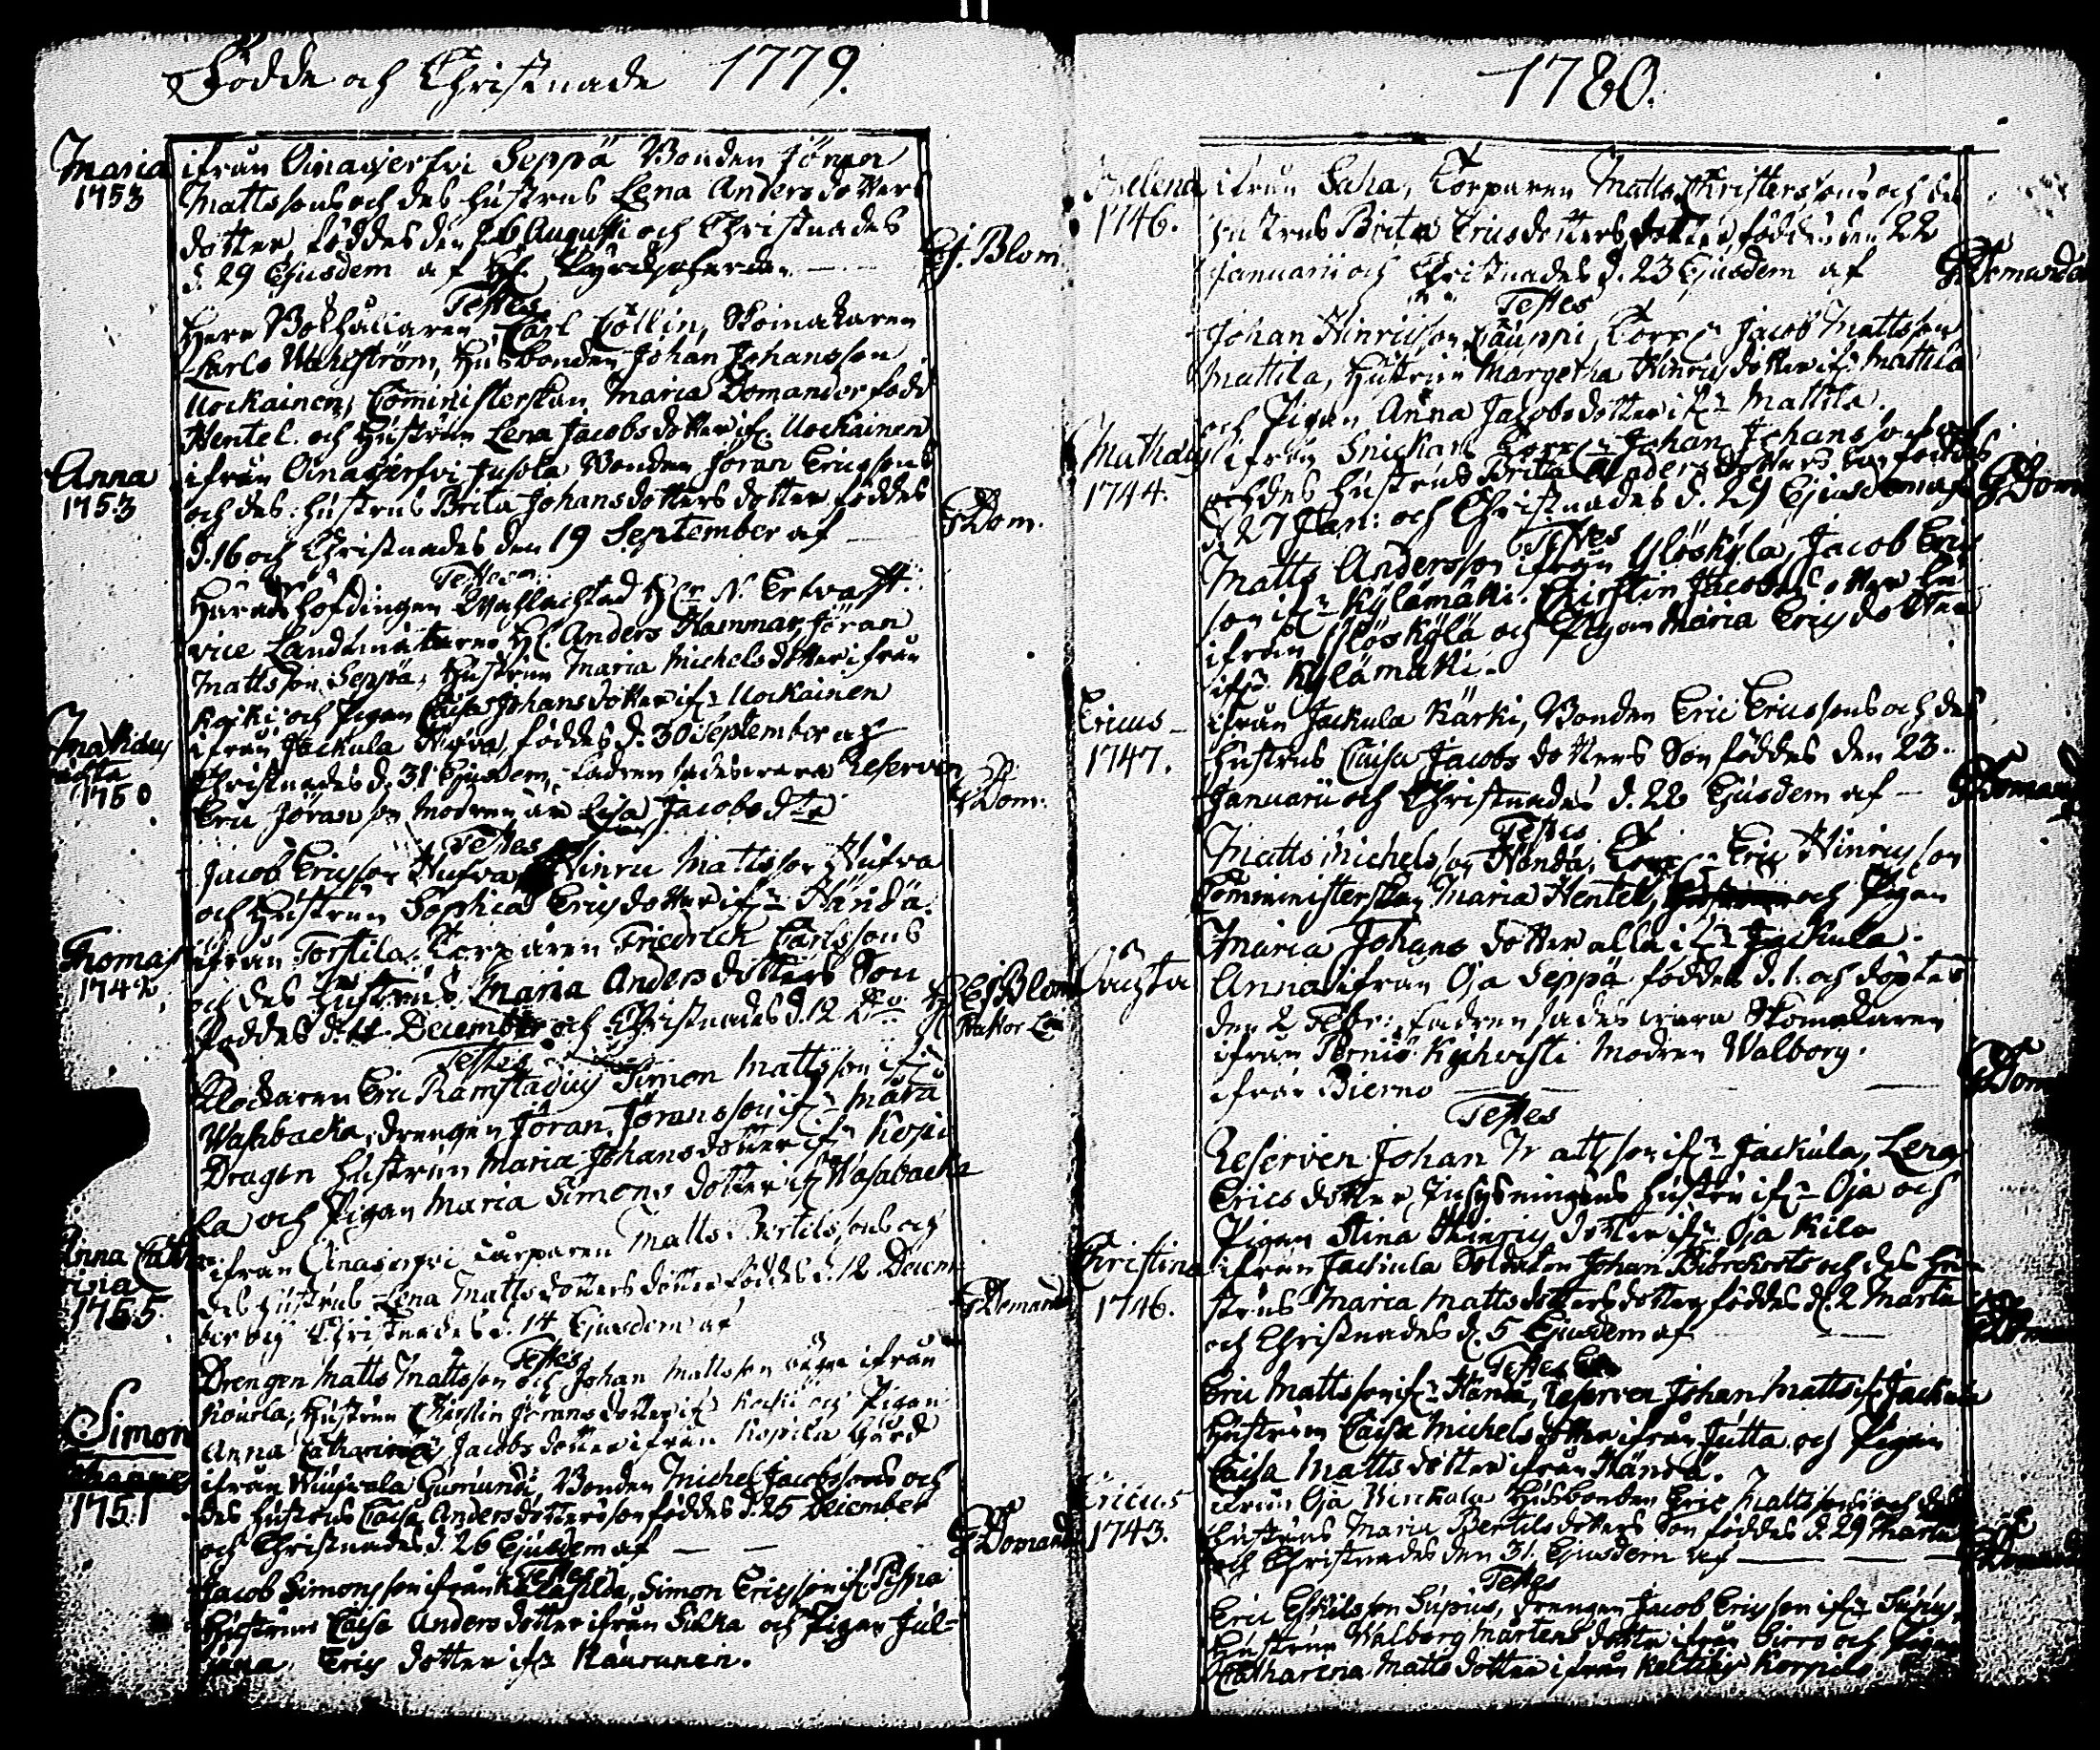 Födde och Christnade 1779.
Maria
1753
ifrån Oinasjerfvi Seppä Bonden Jöran
Mattssons och des hustrus Lena Andersdotters
dotter föddes den 26 Augusti och Christnades
d. 29 Ejusdem af H:
Ej. Blom.
Testes
Herr Bokhållaren Carl Collin, Skomakaren
Carls Wahlström, Husbonden Johan Johansson
Uockainen, Comministerskan Maria Domander född
Hentel. och Hustrun Lena Jacobsdotter ifr. Uockainen
Anna
1753
ifrån Oinasjerfvi Jusola Bonden Jöran Ericssons
och des hustrus Brita Johansdotters dotter föddes
d. 16 och Christnades den 19 September af
G Dom.
Testes
Häradshöfdingen N. Ertvast.
vice Landtmätaren H. Anders Hammar, Jöran
Mattsson Seppä, Hustrun Maria Michelsdotter ifrån
Koski och Pigan Caisa Johansdotter ifr. Uockainen
Mathias
oächta
1750
ifrån Jackula föddes d. 30 September och
Christnades d. 31 Ejusdem, fadren sades wara Reserven
Eric Jöransson modren är Lisa Jacobsdtr
G Dom.
Testes
Jacob Ericsson Hufva, Hinric Mattsson Hufva
och Hustrun Sophia Ericsdotter ifrn Händä.
Thomas
1742
ifrån Torstila, Torparen Friedrich Carlssons
och des Hustrus Maria Andersdotters Son
föddes d. 11 December och Christnades d. 12 dito
H. Ej Blom
Testes
Klockaren Eric Ramstadius Simon Mattsson ifr.
Wasabacka, drengen Jöran Jöransson ifr. Mara
Dragon Hustrun Maria Johansdotter ifr. Kopi
la och Pigan Maria Simonsdotter ifr Wasabacka
Anna Catha
rina
1755
ifrån Oinasjerfvi Torparen Matts Bertilssons och
des Hustrus Lena Mattsdotters dotter föddes d. 12 Decem
ber och Christnades d. 14 Ejusdem af
G Domand
Testes
Drengen Matts Mattsson och Johan Mattsson ifrån
Kourla, Hustrun Christin Jöransdotter ifr Koski och Pigan
Anna Catharina Jacobsdotter ifrån Kopila Gård
Simon
1751
ifrån Bonden Michel Jacobssons och
des Hustrus Caisa Andersdotters son föddes d. 25 December
och Christnades d. 26 Ejusdem af
G Domand
Testes
Jacob Simonsson ifrån Simon Ericsson ifr.
Hustrun Caisa Andersdotter ifrån Silka och Pigan Jul-
jana Ericsdotter ifr Kaurunen.
1780.
Helena
1746.
ifrån Saha, Torparen Matts Christerssons och des
hustrus Brita Ericsdotters dotter, föddes den 22
Januarii och Christnades d. 23 Ejusdem af
G Domander
Testes
Johan Hinricsson Cauppi, Torp. Jacob Mattsson
Mattila, Hustrun Margetha Hinricsdotter ifr. Mattila
och Pigan Anna Jacobsdotter ifr. Mattila.
Mathias
1744.
ifrån Snickari Torp. Johan Johanssons
och des Hustrus Brita Andersdotters son föddes
d. 27 Jan: och Christnades d. 29 Ejusdem af
G Dom
Testes
Matts Andersson ifrån Ylöskylä, Jacob Eric
son ifr. Kylämäki. Christin Jacobsdotter
ifrån Ylöskylä och Pigan Maria Ericsdotter
ifr. Kylämäki.
Ericus
1747.
ifrån Jackula Kärki, Bonden Eric Ericssons och des
Hustrus Caisa Jacobsdotters Son föddes den 23.
Januarii och Christnades d. 28 Ejusdem af
G Doman
Testes
Matts Michelsson Händä, Torp. Eric Hinricsson
Comministerskan Maria Hentel, och Pigan
Maria Johansdotter alla ifr. Jackula.
Oächta
Anna ifrån Oja Seppä föddes d. 1. och döptes
den 2 Febr: fadren sades wara Skomakaren
ifrån Pernio Modren Walborg.
ifrån Bierno
G Dom
Testes
Reserven Johan Mattsson ifr. Jackula, Lena
Ericsdotter, Inhysningens hustru ifr. Oja och
Pigan Stina Hinricsdotter ifr. Oja Kila
Christina
1746.
ifrån Jackula Soldaten Johan och des Hu
strus Maria Mattsdotters dotter föddes d. 2 Martii
och Christnades d. 5 Ejusdem af
Testes
Eric Mattsson ifr. Händä, Reserven Johan Matts. ifr Jackula
Hustrun Caisa Michelsdotter ifrån Jutta och Pigan
Caisa Mattsdotter ifrån Händä.
Ericus
1743.
ifrån Oja Husbonden Eric Mattssons och des
Hustrus Maria Bertilsdotters Son föddes d. 29 Martii
och Christnades den 31. Ejusdem af
Testes
Eric Eskilsson Supius, drengen Jacob Ericsson ifr. Supius
Hustrun Walborg Mårtensdotter ifrån Sirro och Pigan
Catharina Mattsdotter ifrån Korpila